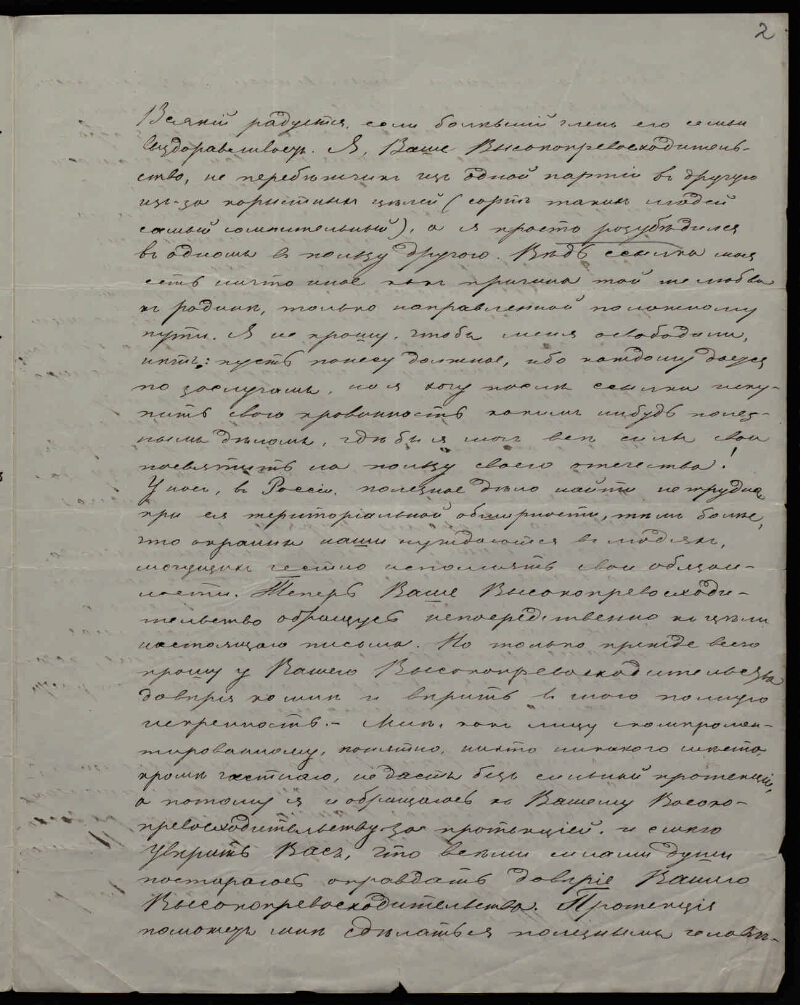 2
Всякій радуется, если больный членъ его семьи
выздоравливаетъ. Я, Ваше Высокопревосходитель-
ство, не перебѣжчикъ изъ одной партіи въ другую
из-за корыстных цѣлей (сортъ такихъ людей
самый сомнительный), а я просто разубѣдился
въ одномъ въ пользу другого. Вѣдь ссылка моя
есть ничто иное какъ причина той же любви
къ родинѣ, только направленной по ложному
пути. Я не прошу, чтобы меня освободили,
нѣтъ: пусть понесу должное, ибо каждому дается
по заслугамъ, но я хочу послѣ ссылки иску-
пить свою провинность какимъ нибудь полез-
нымъ дѣломъ, гдѣ бы я могъ всѣ силы свои
посвятить на пользу своего отечества!
У насъ, въ Россіи, полезное дѣло найти не трудно,
при ея територіальной обширности, тѣмъ болѣе,
что окраины наши нуждаются въ людяхъ,
могущихъ честно исполнять свои обязан-
ности. Теперь Ваше Высокопревосходи-
тельство обращусь непосредственно къ цѣли
настоящаго письма. Но только прежде всего
прошу у Вашего Высокопревосходительства
довѣрія ко мнѣ и вѣрить въ мою полную
искренность. — Мнѣ, какъ лицу скомпроме-
тированному, понятно, никто никакого мѣста,
кромѣ частнаго, не дастъ безъ сильной протекціи,
а потому я и обращаюсь къ Вашему Высоко-
превосходительству за протекціей, и смѣю
увѣрить Васъ, что всѣми силами души
постараюсь оправдать довѣріе Вашего
Высокопревосходительства. Протекція
поможетъ мнѣ сдѣлаться полезнымъ человѣ-